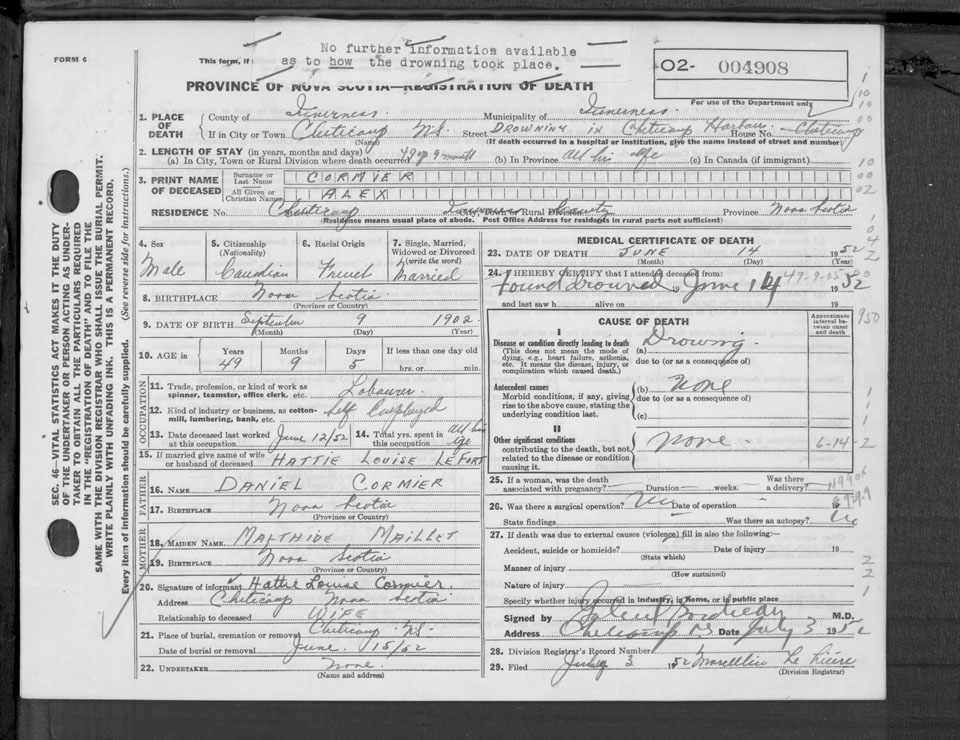 No further information available
FORM 6
This form, if
as to how the drowning took place.
O2- 004908
PROVINCE OF NOVA SCOTIA—REGISTRATION OF DEATH
For use of the Department only
1. PLACE OF DEATH
County of Inverness Municipality of Inverness
If in City or Town Cheticamp N.S. Street DROWNING in Cheticamp Harbour House No. Cheticamp
(Name) (If death occurred in a hospital or institution, give the name instead of street and number)
2. LENGTH OF STAY (in years, months and days)
(a) In City, Town or Rural Division where death occurred 49 yr 9 months (b) In Province All his life (c) In Canada (if immigrant)
3. PRINT NAME OF DECEASED
Surname or Last Name CORMIER
All Given or Christian Names ALEX
RESIDENCE No. Cheticamp Inverness County City, Town or Rural Division Province Nova Scotia
(Residence means usual place of abode. Post Office Address for residents in rural parts not sufficient)
4. Sex Male
5. Citizenship (Nationality) Canadian
6. Racial Origin French
7. Single, Married, Widowed or Divorced (write the word) Married
8. BIRTHPLACE Nova Scotia
(Province or Country)
9. DATE OF BIRTH September 9 1902
(Month) (Day) (Year)
10. AGE in Years Months Days If less than one day old
49 9 5 hrs. or min.
OCCUPATION
11. Trade, profession, or kind of work as spinner, teamster, office clerk, etc. Labourer
12. Kind of industry or business, as cotton-mill, lumbering, bank, etc. Self Employed
13. Date deceased last worked at this occupation June 12/52
14. Total yrs. spent in this occupation All his life
15. If married give name of wife or husband of deceased HATTIE LOUISE LEFORT
FATHER
16. NAME DANIEL CORMIER
17. BIRTHPLACE Nova Scotia
(Province or Country)
MOTHER
18. MAIDEN NAME MATHIDE MAILLET
19. BIRTHPLACE Nova Scotia
(Province or Country)
20. Signature of informant Hattie Louise Cormier.
Address Cheticamp Nova Scotia
Relationship to deceased WIFE
21. Place of burial, cremation or removal Cheticamp N.S.
Date of burial or removal June 15/52
22. UNDERTAKER None.
(Name and address)
MEDICAL CERTIFICATE OF DEATH
23. DATE OF DEATH JUNE 14 1952
(Month) (Day) (Year)
24. I HEREBY CERTIFY that I attended deceased from:
Found drowned 19 June 14 1952
and last saw h alive on 19
CAUSE OF DEATH
Approximate interval between onset and death
I
Disease or condition directly leading to death
(This does not mean the mode of dying, e.g., heart failure, asthenia, etc. It means the disease, injury, or complication which caused death.)
(a) Drowing.
due to (or as a consequence of)
Antecedent causes
Morbid conditions, if any, giving rise to the above cause, stating the underlying condition last.
(b) None
due to (or as a consequence of)
(c)
II
Other significant conditions
contributing to the death, but not related to the disease or condition causing it.
None
6-14-2
25. If a woman, was the death associated with pregnancy? Duration weeks. Was there a delivery?
26. Was there a surgical operation? No Date of operation
State findings Was there an autopsy? No
27. If death was due to external causes (violence) fill in also the following:—
Accident, suicide or homicide? Date of injury 19
(State which)
Manner of injury
(How sustained)
Nature of injury
Specify whether injury occurred in industry, in home, or in public place
Signed by M.D.
Address Cheticamp NS Date July 3 1952
28. Division Registrar's Record Number
29. Filed July 3 1952
(Division Registrar)
SEC. 46—VITAL STATISTICS ACT MAKES IT THE DUTY
OF THE UNDERTAKER OR PERSON ACTING AS UNDERTAKER TO OBTAIN ALL THE PARTICULARS REQUIRED
IN THE "REGISTRATION OF DEATH" AND TO FILE THE
SAME WITH THE DIVISION REGISTRAR WHO SHALL ISSUE THE BURIAL PERMIT.
WRITE PLAINLY WITH UNFADING INK. THIS IS A PERMANENT RECORD.
Every item of information should be carefully supplied. (See reverse side for instructions.)